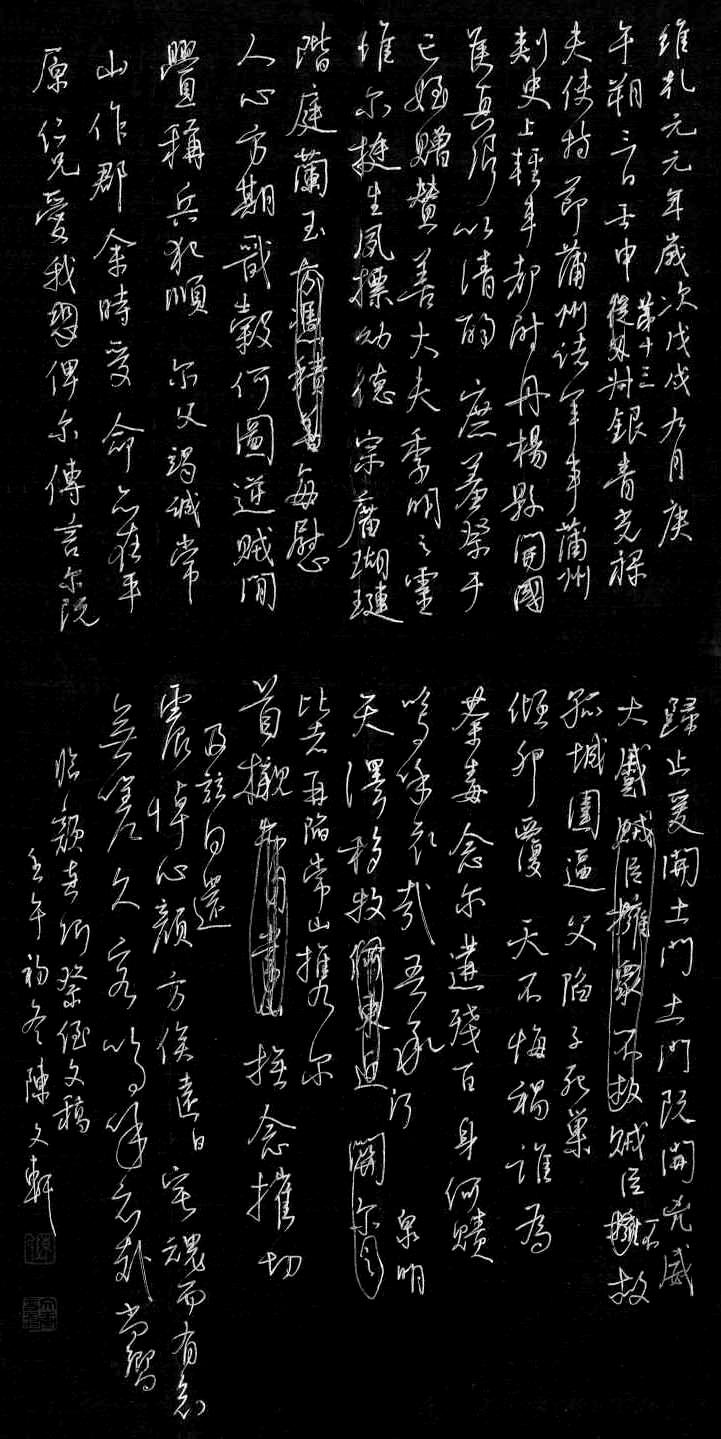 維乾元元年歲次戊戌九月庚
午朔三日壬申第十三從父叔銀青光祿
夫使持節蒲州諸軍事蒲州
刺史上輕車都尉丹楊縣開國
侯真卿以清酌庶羞祭于
亡姪贈贊善大夫季明之靈
惟爾挺生夙標幼德宗廟瑚璉
階庭蘭玉方憑積善每慰
人心方期戩穀何圖逆賊間
釁稱兵犯順爾父竭誠常
山作郡余時受命亦在平
原仁兄愛我恐俾爾傳言爾既
歸止爰開土門土門既開兇威
大蹙賊臣擁眾不救賊臣擁不救
孤城圍逼父陷子死巢
傾卵覆天不悔禍誰為
荼毒念爾遘殘百身何贖
嗚呼哀哉吾承泉明
天澤移牧東近開爾之
比者再陷常山攜爾
首櫬撫念摧切
及茲同還
震悼心顏方俟遠日宅魂而有知
無嗟久客嗚呼哀哉尚饗
臨顏真卿祭侄文稿
壬午初冬陳文軒